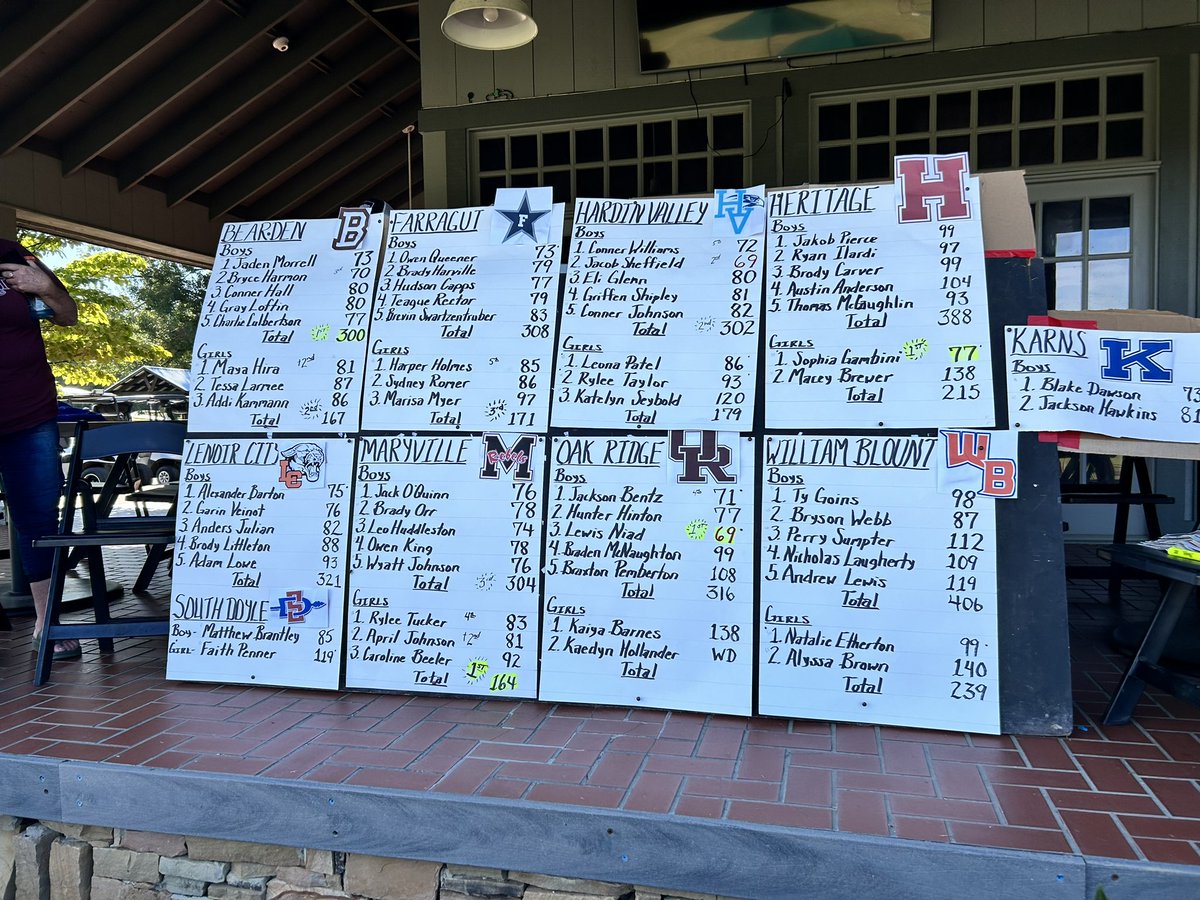 BEARDEN
B
Boys
1. Jaden Morrell 73
2. Bryce Harmon 70
3. Conner Hall 80
4. Gray Loftin 80
5. Charlie Culbertson 77
Total 1st 300
GIRLS
1. Maya Hira 81
2. Tessa Larmee 87
3. Addi Kammann 86
Total 2nd 167
FARRAGUT
F
Boys
1. Owen Queener 73
2. Brady Harville 79
3. Hudson Capps 77
4. Teague Rector 79
5. Brevin Swartzentruber 83
Total 308
GIRLS
1. Harper Holmes 5th 85
2. Sydney Romer 86
3. Marisa Myer 97
Total 3rd 171
HARDIN VALLEY
HV
Boys
1. Conner Williams 72
2. Jacob Sheffield 2nd 69
3. Eli Glenn 80
4. Griffen Shipley 81
5. Conner Johnson 82
Total 2nd 302
GIRLS
1. Leona Patel 86
2. Rylee Taylor 93
3. Katelyn Seybold 120
Total 179
HERITAGE
H
Boys 99
1. Jakob Pierce 97
2. Ryan Ilardi 99
3. Brody Carver 104
4. Austin Anderson 93
5. Thomas McGaughlin 388
Total
GIRLS
1. Sophia Gambini 1st 77
2. Macey Brewer 138
Total 215
KARNS
K
Boys
1. Blake Dawson
2. Jackson Hawkins
LENOIR CITY
LC
Boys
1. Alexander Barton 75
2. Garin Veinot 76
3. Anders Julian 82
4. Brody Littleton 88
5. Adam Lowe 93
Total 321
SOUTH DOYLE
SD
Boy- Matthew Brantley 85
Girl- Faith Penner 119
MARYVILLE
M
Rebels
Boys
1. Jack O'Quinn 76
2. Brady Orr 78
3. Leo Huddleston 74
4. Owen King 78
5. Wyatt Johnson 76
Total 3rd 304
GIRLS
1. Rylee Tucker 4th 83
2. April Johnson 2nd 81
3. Caroline Beeler 92
Total 1st 164
OAK RIDGE
OR
Boys
1. Jackson Bentz 4th 71
2. Hunter Hinton 77
3. Lewis Niad 1st 69
4. Braden McNaughton 99
5. Braxton Pemberton 108
Total 316
GIRLS
1. Kaiya Barnes 138
2. Kaedyn Hollander WD
Total
WILLIAM BLOUNT
WB
Boys
1. Ty Goins 98
2. Bryson Webb 87
3. Perry Sumpter 112
4. Nicholas Laugherty 109
5. Andrew Lewis 119
Total 406
GIRLS
1. Natalie Etherton 99
2. Alyssa Brown 140
Total 239